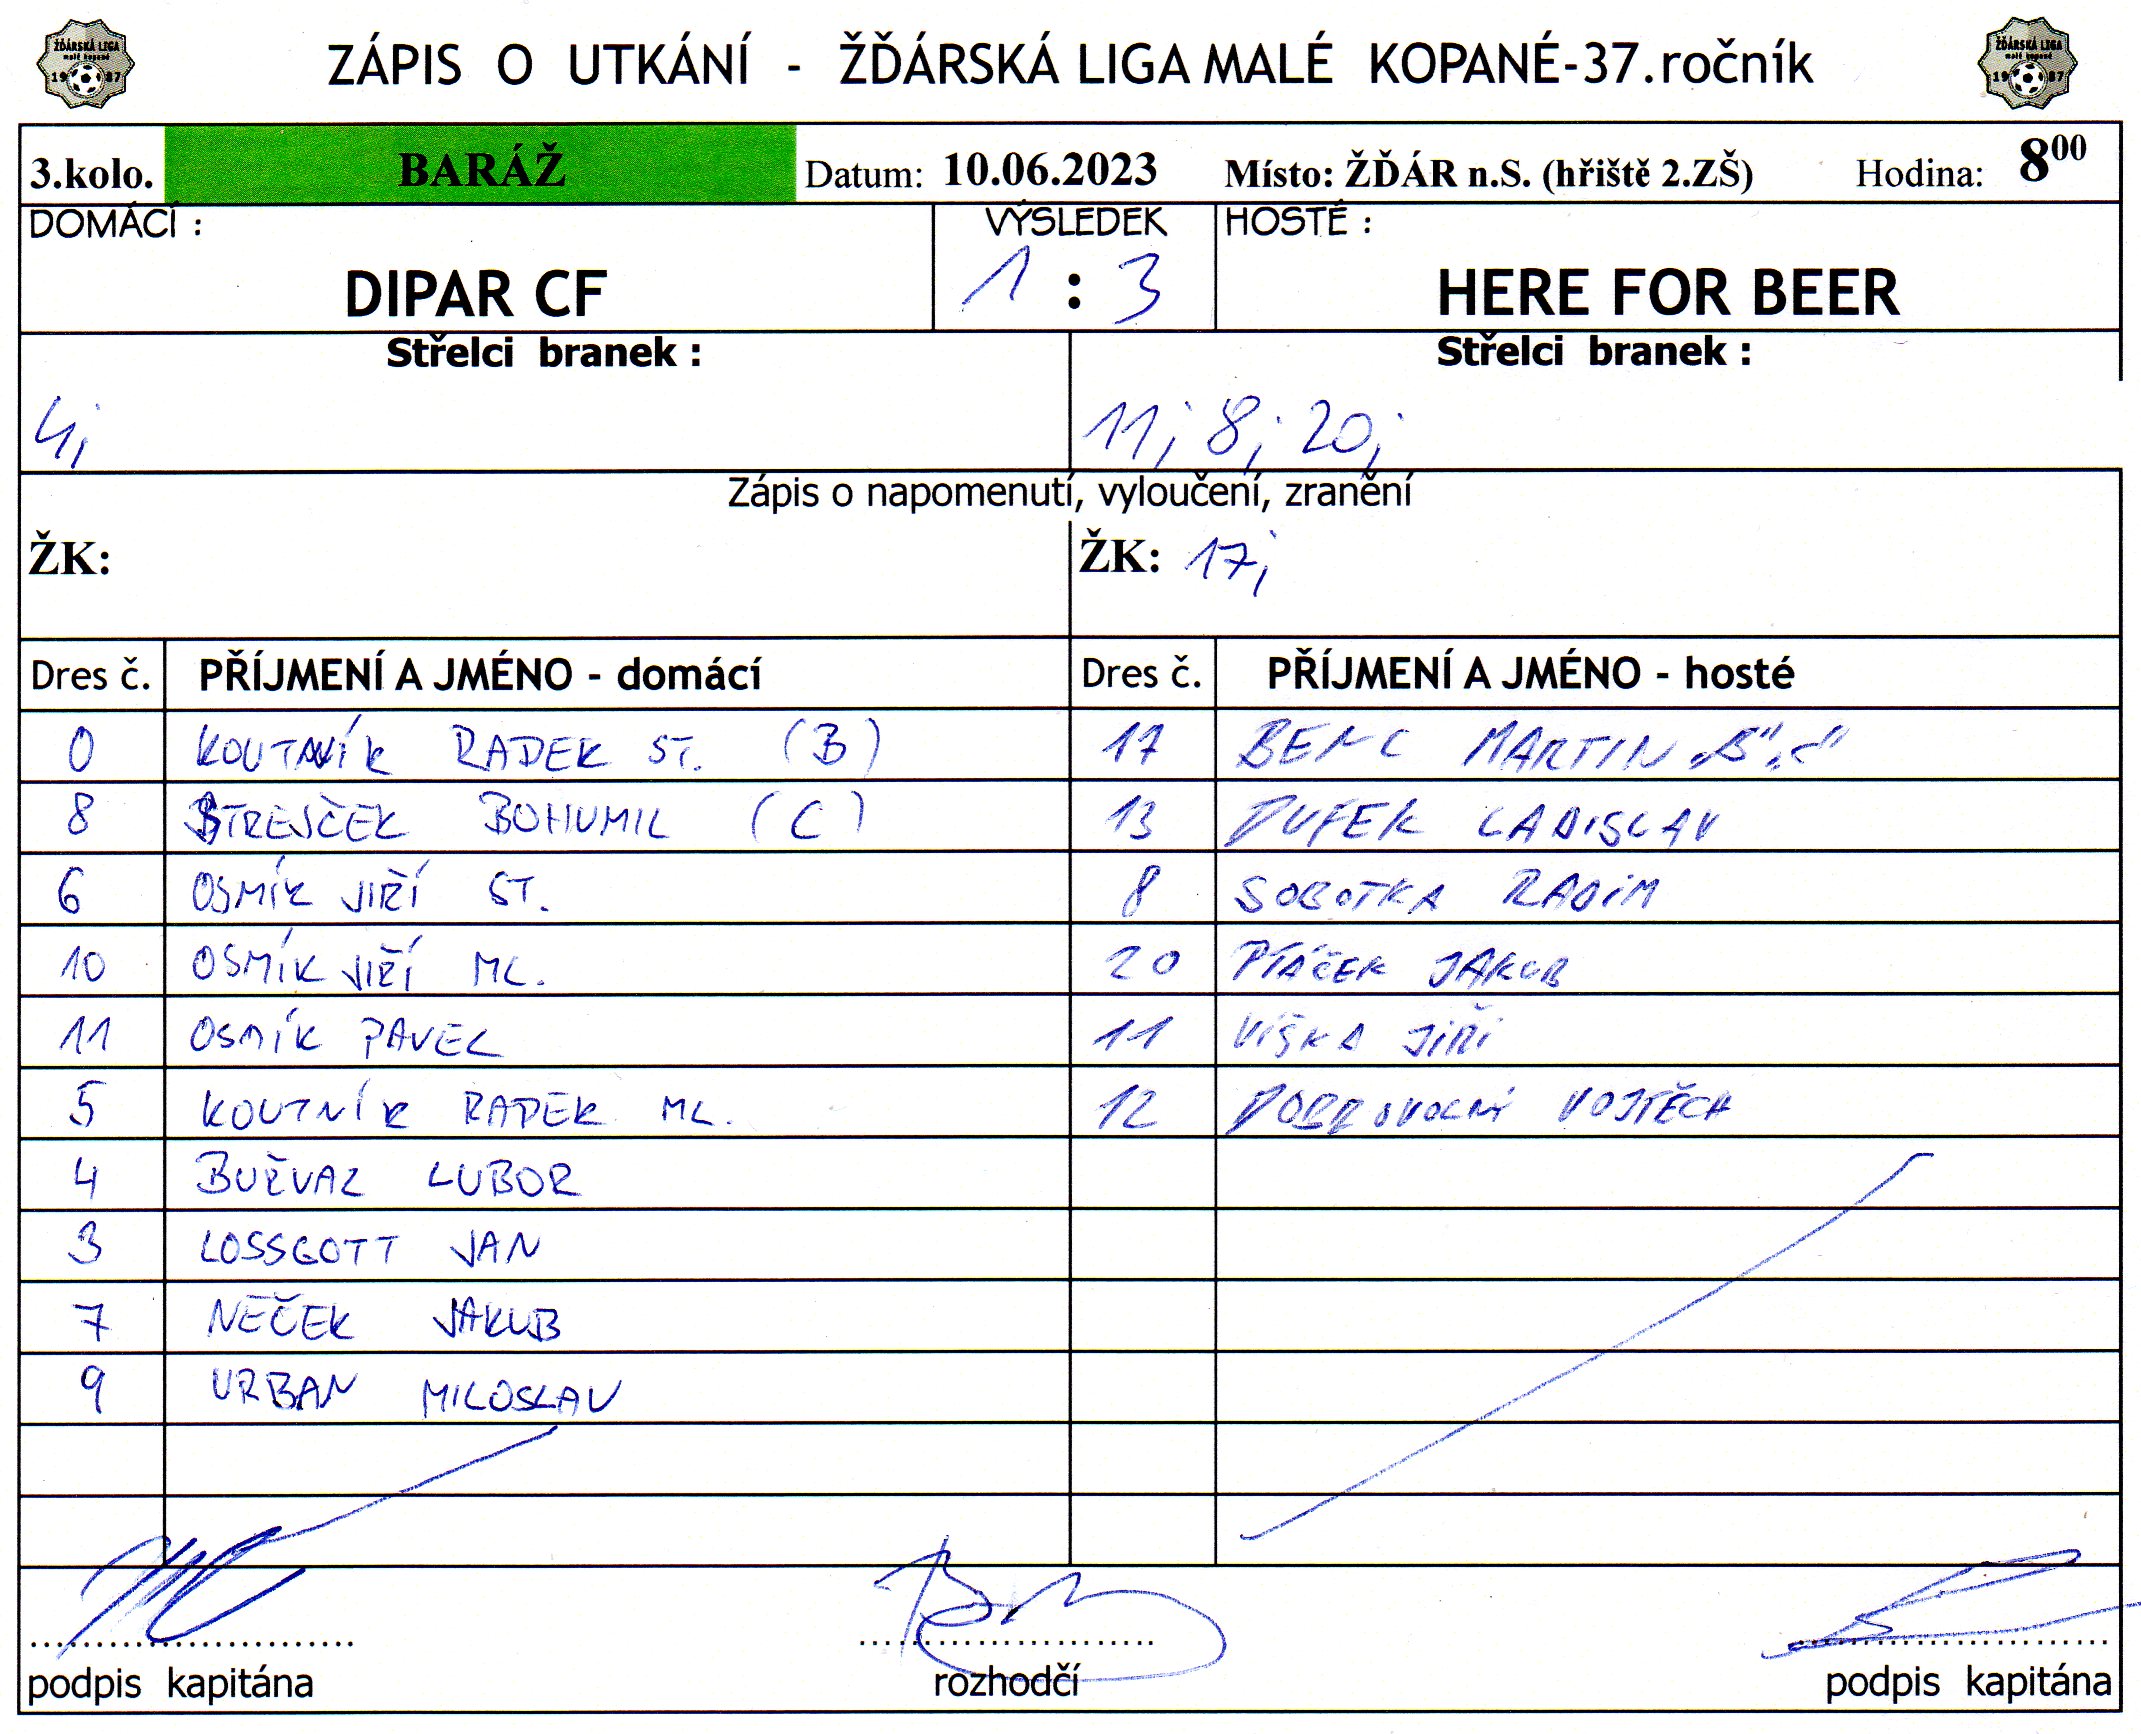 ŽĎÁRSKÁ LIGA
malé kopané
1987
ZÁPIS O UTKÁNÍ - ŽĎÁRSKÁ LIGA MALÉ KOPANÉ-37.ročník
ŽĎÁRSKÁ LIGA
malé kopané
1987
3.kolo. BARÁŽ Datum: 10.06.2023 Místo: ŽĎÁR n.S. (hřiště 2.ZŠ) Hodina: 8⁰⁰
DOMÁCÍ : VÝSLEDEK HOSTÉ :
DIPAR CF 1 : 3 HERE FOR BEER
Střelci branek : Střelci branek :
4; 11; 8; 20;
Zápis o napomenutí, vyloučení, zranění
ŽK: ŽK: 17;
Dres č. PŘÍJMENÍ A JMÉNO - domácí Dres č. PŘÍJMENÍ A JMÉNO - hosté
0 KOUTNÍK RADEK ST. (B) 17 BENC MARTIN „B" „C"
8 STREJČEK BOHUMIL (C) 13 DUFEK LADISLAV
6 OSMÍK JIŘÍ ST. 8 SOBOTKA RADIM
10 OSMÍK JIŘÍ ML. 20 PTÁČEK JAKUB
11 OSMÍK PAVEL 11 VÍŠKA JIŘÍ
5 KOUTNÍK RADEK ML. 12 DOBROVOLNÝ VOJTĚCH
4 BUŘVAL LUBOR
3 LOSSGOTT JAN
7 NĚČEK JAKUB
9 URBAN MILOSLAV
podpis kapitána rozhodčí podpis kapitána